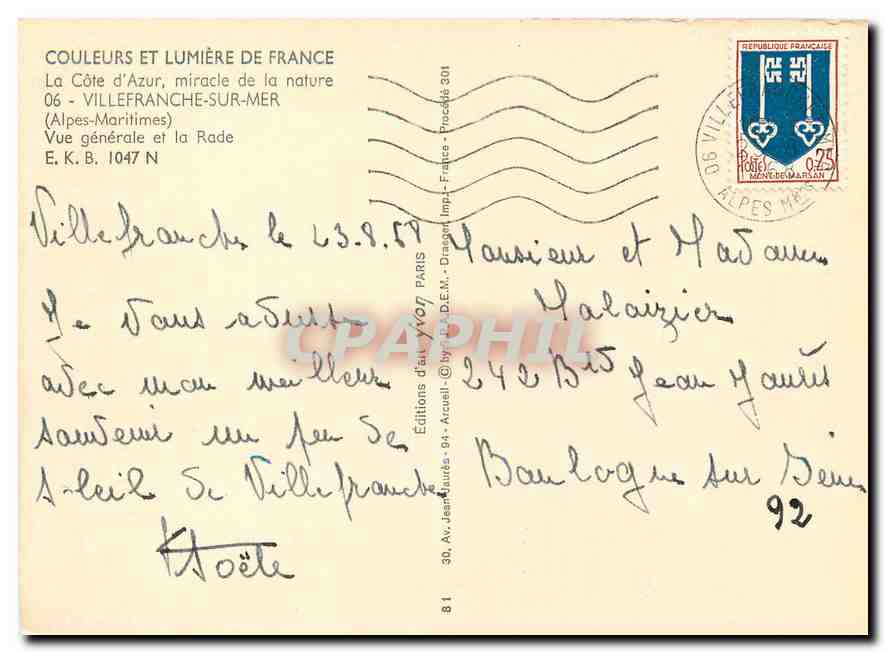 COULEURS ET LUMIÈRE DE FRANCE
La Côte d'Azur, miracle de la nature
06 - VILLEFRANCHE-SUR-MER
(Alpes-Maritimes)
Vue générale et la Rade
E. K. B. 1047 N
Villefranche le 23.8.68
Je vous adresse
avec mon meilleur
souvenir un peu de
Soleil de Villefranche
Editions d'art yvon PARIS
30, Av. Jean-Jaurès - 94 - Arcueil - © by S.P.A.D.E.M. - Draeger, Imp. - France - Procédé 301
81
RÉPUBLIQUE FRANÇAISE
POSTES 0,25
MONT-DE-MARSAN
06 VILLEFRANCHE
ALPES MMES
Monsieur et Madame
Malaizier
242 Bld Jean Jaurès
Boulogne sur Seine
92
CPAPHIL